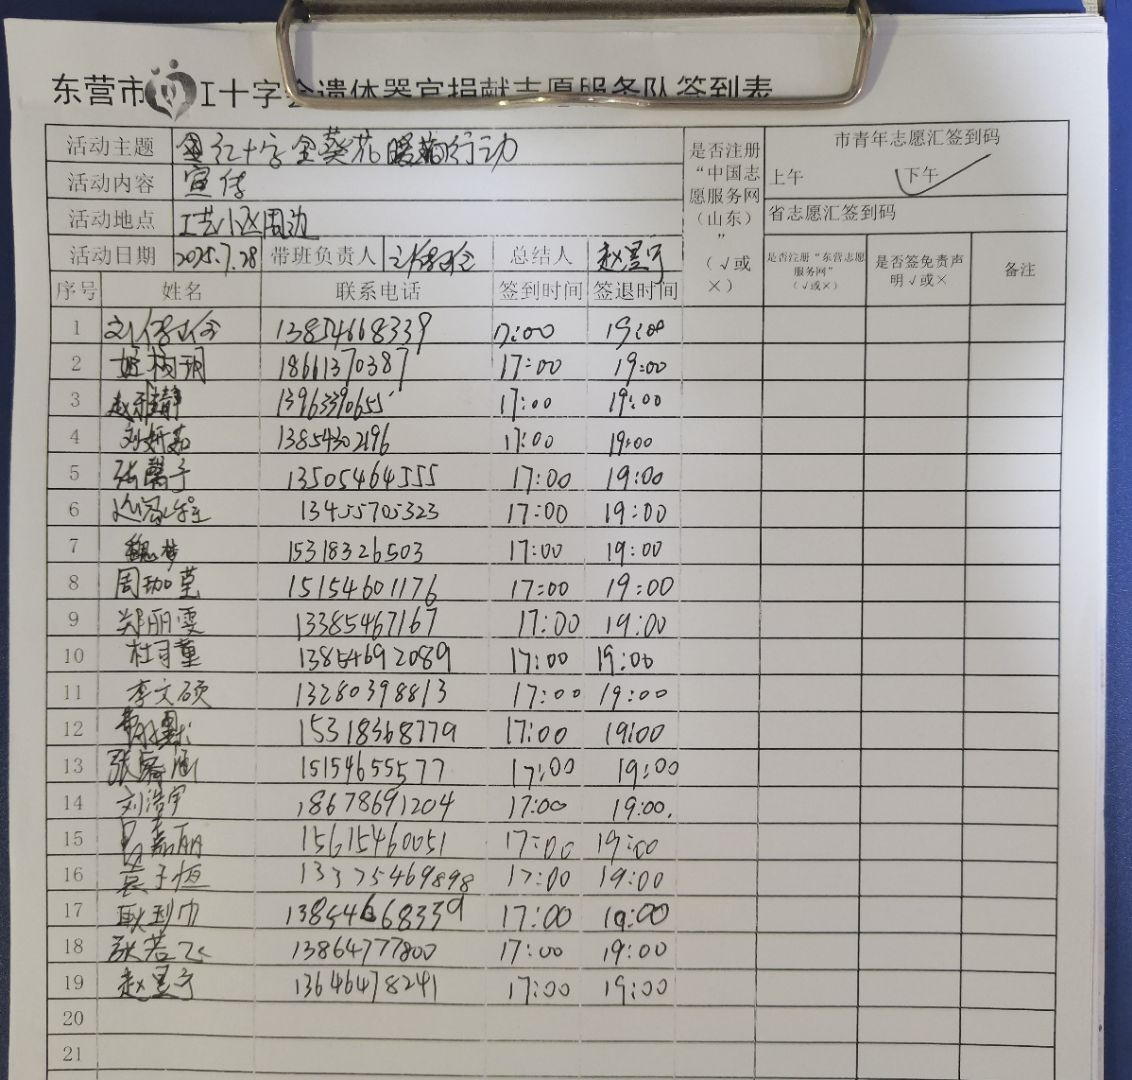 东营市红十字会遗体器官捐献志愿服务队签到表
活动主题 红十字金葵花暖 行动
活动内容 宣传
活动地点 工艺小区周边
活动日期 2025.7.28 带班负责人 总结人 赵昱宁
是否注册“中国志愿服务网（山东）”（√或×）
市青年志愿汇签到码
上午 下午 ✓
省志愿汇签到码
是否注册“东营志愿服务网”（√或×） 是否签免责声明√或× 备注
序号 姓名 联系电话 签到时间 签退时间
1 13854668339 17:00 19:00
2 18661370387 17:00 19:00
3 赵雅静 13963390655 17:00 19:00
4 刘妍茹 13854302196 17:00 19:00
5 张馨子 13505464555 17:00 19:00
6 13455705323 17:00 19:00
7 魏梦 15318326503 17:00 19:00
8 周珈莹 15154601176 17:00 19:00
9 郑丽雯 13385467167 17:00 19:00
10 杜可董 13854692089 17:00 19:00
11 李文硕 13280398813 17:00 19:00
12 15318368779 17:00 19:00
13 张 涵 15154655577 17:00 19:00
14 刘浩宇 18678691204 17:00 19:00.
15 嘉丽 15615460051 17:00 19:00
16 袁子恒 13375469898 17:00 19:00
17 13854668339 17:00 19:00
18 张若飞 13864777800 17:00 19:00
19 赵昱宁 13646478241 17:00 19:00
20
21